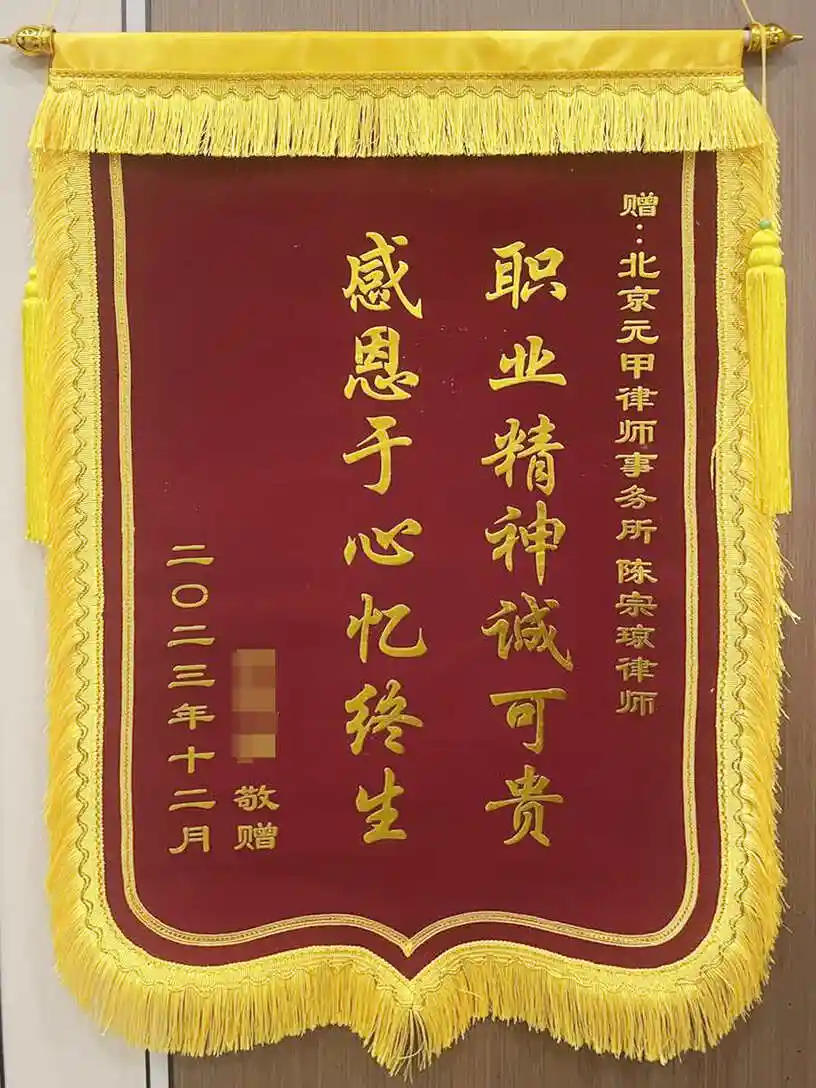 赠：北京元甲律师事务所 陈宗琼律师
职业精神诚可贵
感恩于心忆终生
敬赠
二〇二三年十二月